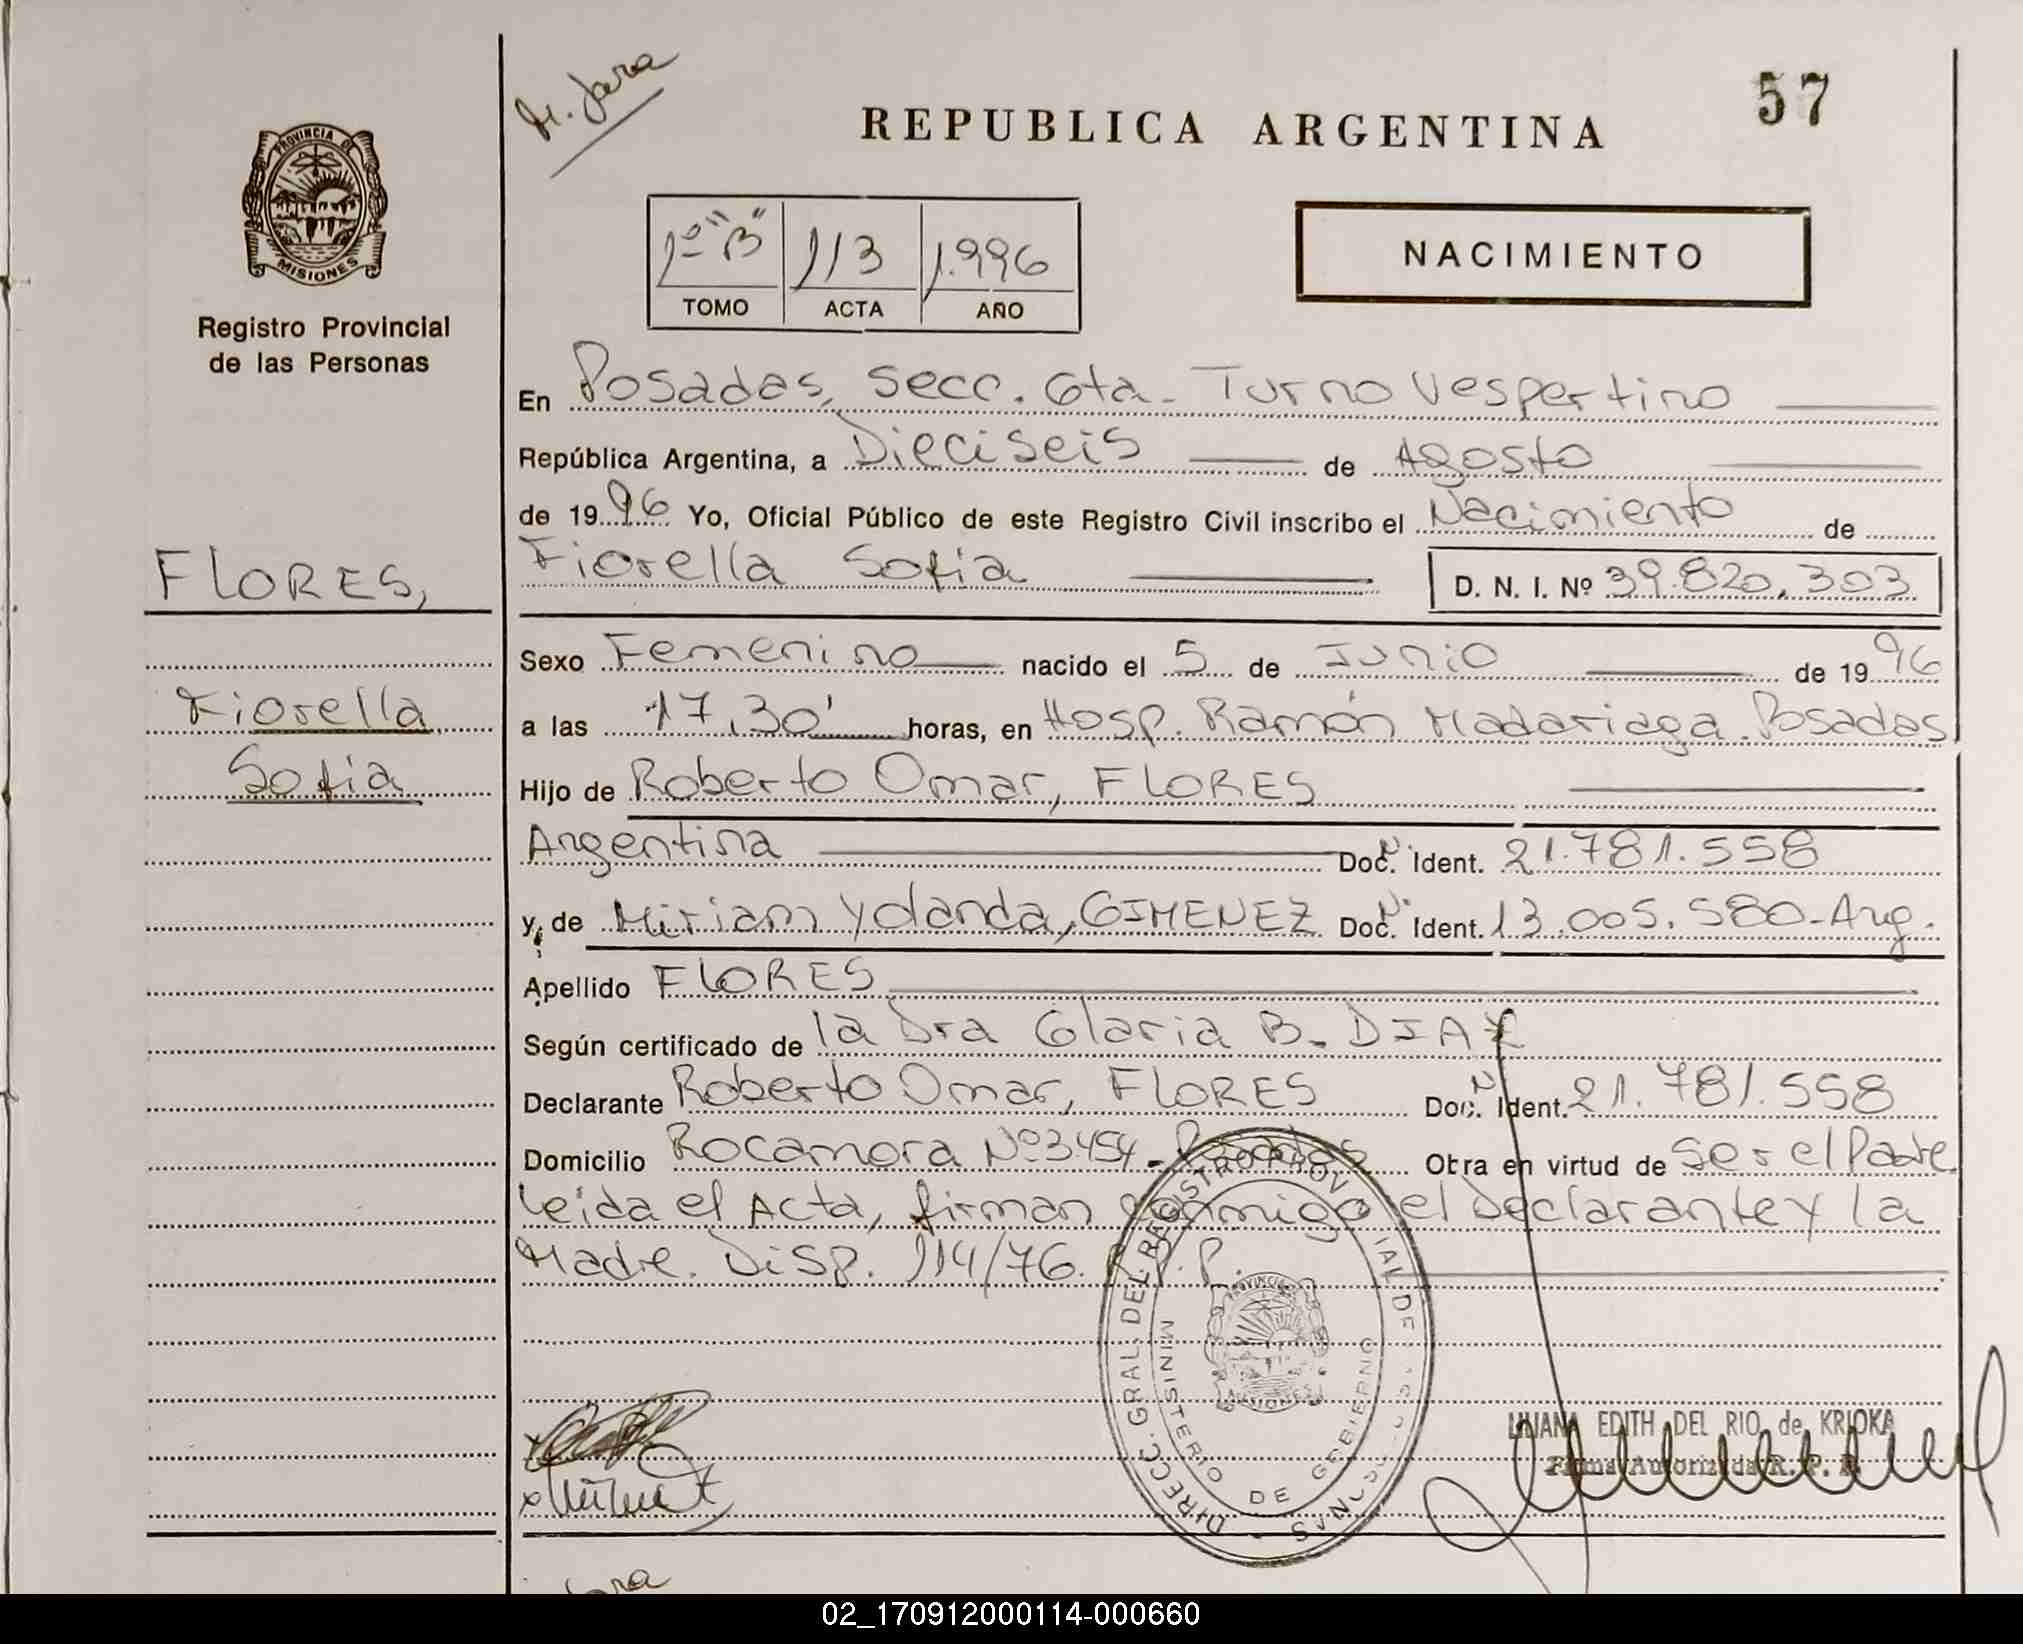 M. Jara
57
REPUBLICA ARGENTINA
PROVINCIA DE
MISIONES
Registro Provincial
de las Personas
1º "B" 113 1.996
TOMO ACTA AÑO
NACIMIENTO
En Posadas, Secc. 6ta. Turno Vespertino
República Argentina, a Dieciseis de Agosto
de 1996 Yo, Oficial Público de este Registro Civil inscribo el Nacimiento de
Fiorella Sofia D. N. I. Nº 39.820.303
FLORES,
Fiorella
Sofia
Sexo Femenino nacido el 5 de Junio de 1996
a las 17,30' horas, en Hosp. Ramón Madariaga. Posadas
Hijo de Roberto Omar, FLORES
Argentina Doc. Ident. 21.781.558
y, de Miriam Yolanda, GIMENEZ Doc. Ident. 13.005.580-Arg.
Apellido FLORES
Según certificado de la Dra Glaria B. DIAZ
Declarante Roberto Omar, FLORES Doc. Ident. 21.781.558
Domicilio Rocamora Nº 3454. Posadas Otra en virtud de Ser el Padre.
Leida el Acta, firman conmigo el Declarante y la
Madre. Disp. 114/76. R.P.P.
DIRECC. GRAL. DEL REGISTRO PROVINCIAL DE LAS PERSONAS
MINISTERIO DE GOBIERNO
PROVINCIA DE
MISIONES
LILIANA EDITH DEL RIO de KRIOKA
Firma Autorizada R. P. P.
02_170912000114-000660